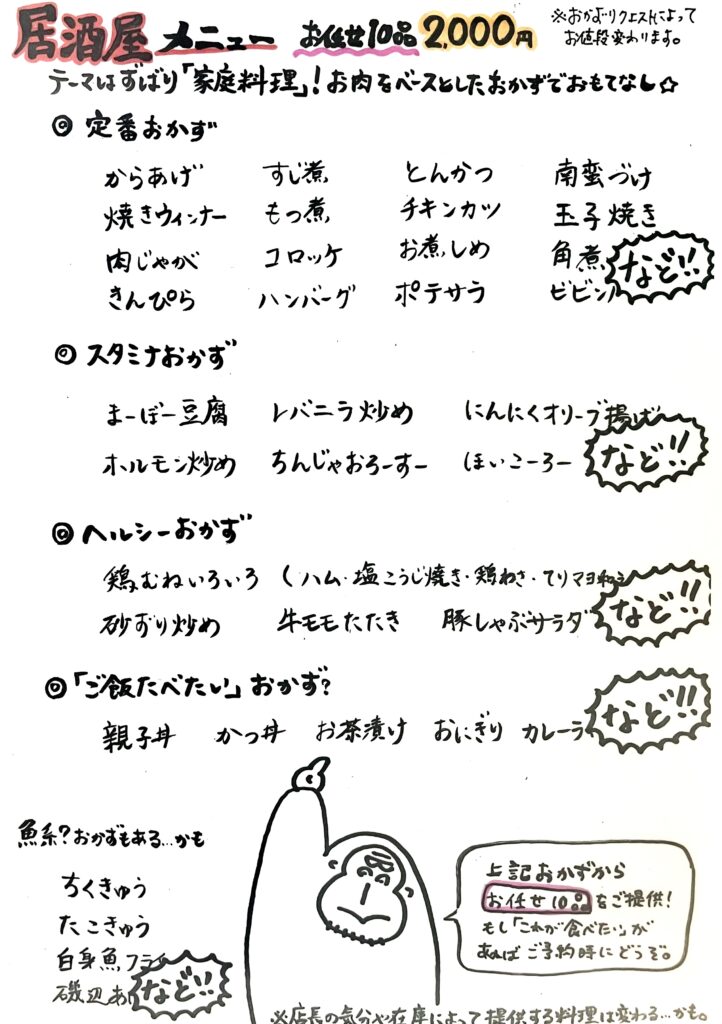 居酒屋 メニュー お任せ10品 2,000円
※おかずリクエストによって
お値段変わります。
テーマはずばり「家庭料理」! お肉をベースとしたおかずでおもてなし☆
◎ 定番おかず
からあげ すじ煮 とんかつ 南蛮づけ
焼きウィンナー もつ煮 チキンカツ 玉子焼き
肉じゃが コロッケ お煮しめ 角煮
きんぴら ハンバーグ ポテサラ ビビン
など!!
◎ スタミナおかず
まーぼー豆腐 レバニラ炒め にんにくオリーブ揚げ
ホルモン炒め ちんじゃおろーすー ほいこーろー
など!!
◎ ヘルシーおかず
鶏むねいろいろ (ハム・塩こうじ焼き・鶏わさ・てりマヨ和
砂ずり炒め 牛モモたたき 豚しゃぶサラダ
など!!
◎ 「ご飯たべたい」おかず?
親子丼 かつ丼 お茶漬け おにぎり カレーラ
など!!
魚系?おかずもある…かも
ちくきゅう
たこきゅう
白身魚フライ
磯辺あ
など!!
上記おかずから
お任せ10品をご提供!
もし「これが食べたい」が
あればご予約時にどうぞ。
※店長の気分や在庫によって提供する料理は変わる…かも。